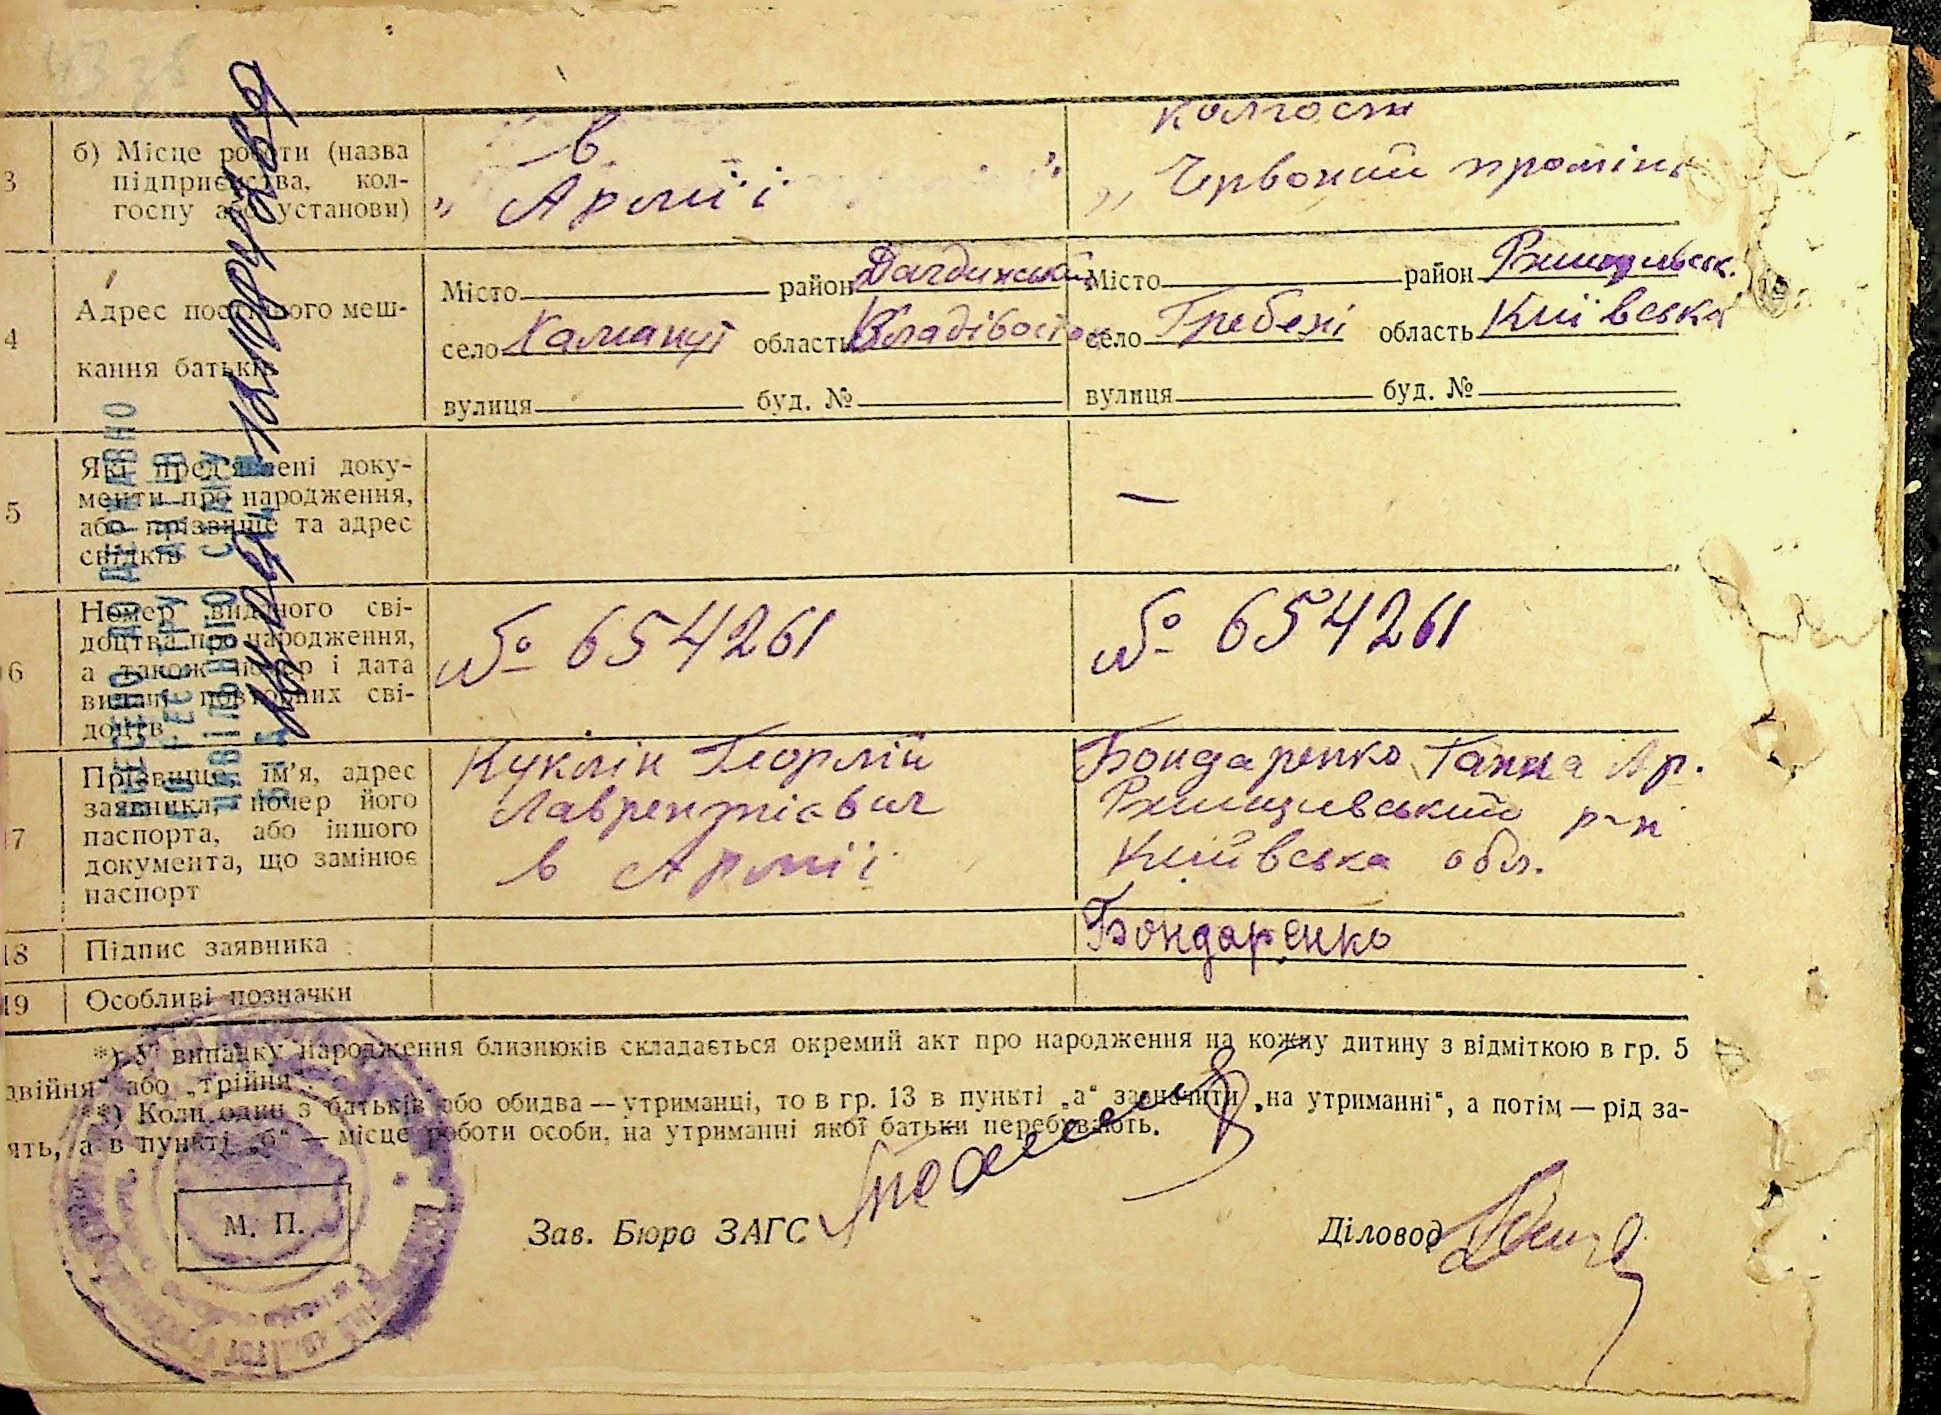 3 б) Місце роботи (назва підприємства, колгоспу або установи)
в
„ Армії "
Колгосп
„ Червоний промінь
4 Адрес постійного мешкання батьків
Місто район
село область Владівосток
вулиця буд. №
Місто район
село Гребені область Київська
вулиця буд. №
5 Які пред'явлені документи про народження, або прізвище та адрес свідків
—
16 Номер виданого свідоцтва про народження, а також номер і дата видачі повторних свідоцтв
№ 654261
№ 654261
17 Прізвище, ім'я, адрес заявника, номер його паспорта, або іншого документа, що замінює паспорт
Куклін Георгій
Лаврентієвич
в Армії
Бондаренко Ганна
р-н
Київська обл.
18 Підпис заявника
Бондаренко
19 Особливі позначки
ВНЕСЕНО ДО ДЕРЖАВНО
РЕЄСТРУ АКТІВ
ЦИВІЛЬНОГО СТАНУ
*) У випадку народження близнюків складається окремий акт про народження на кожну дитину з відміткою в гр. 5
двійня" або „трійня".
**) Коли один з батьків або обидва — утриманці, то в гр. 13 в пункті „а" зазначити „на утриманні", а потім — рід за-
ять, а в пункті „б" — місце роботи особи, на утриманні якої батьки перебувають.
М. П.
Зав. Бюро ЗАГС
Діловод